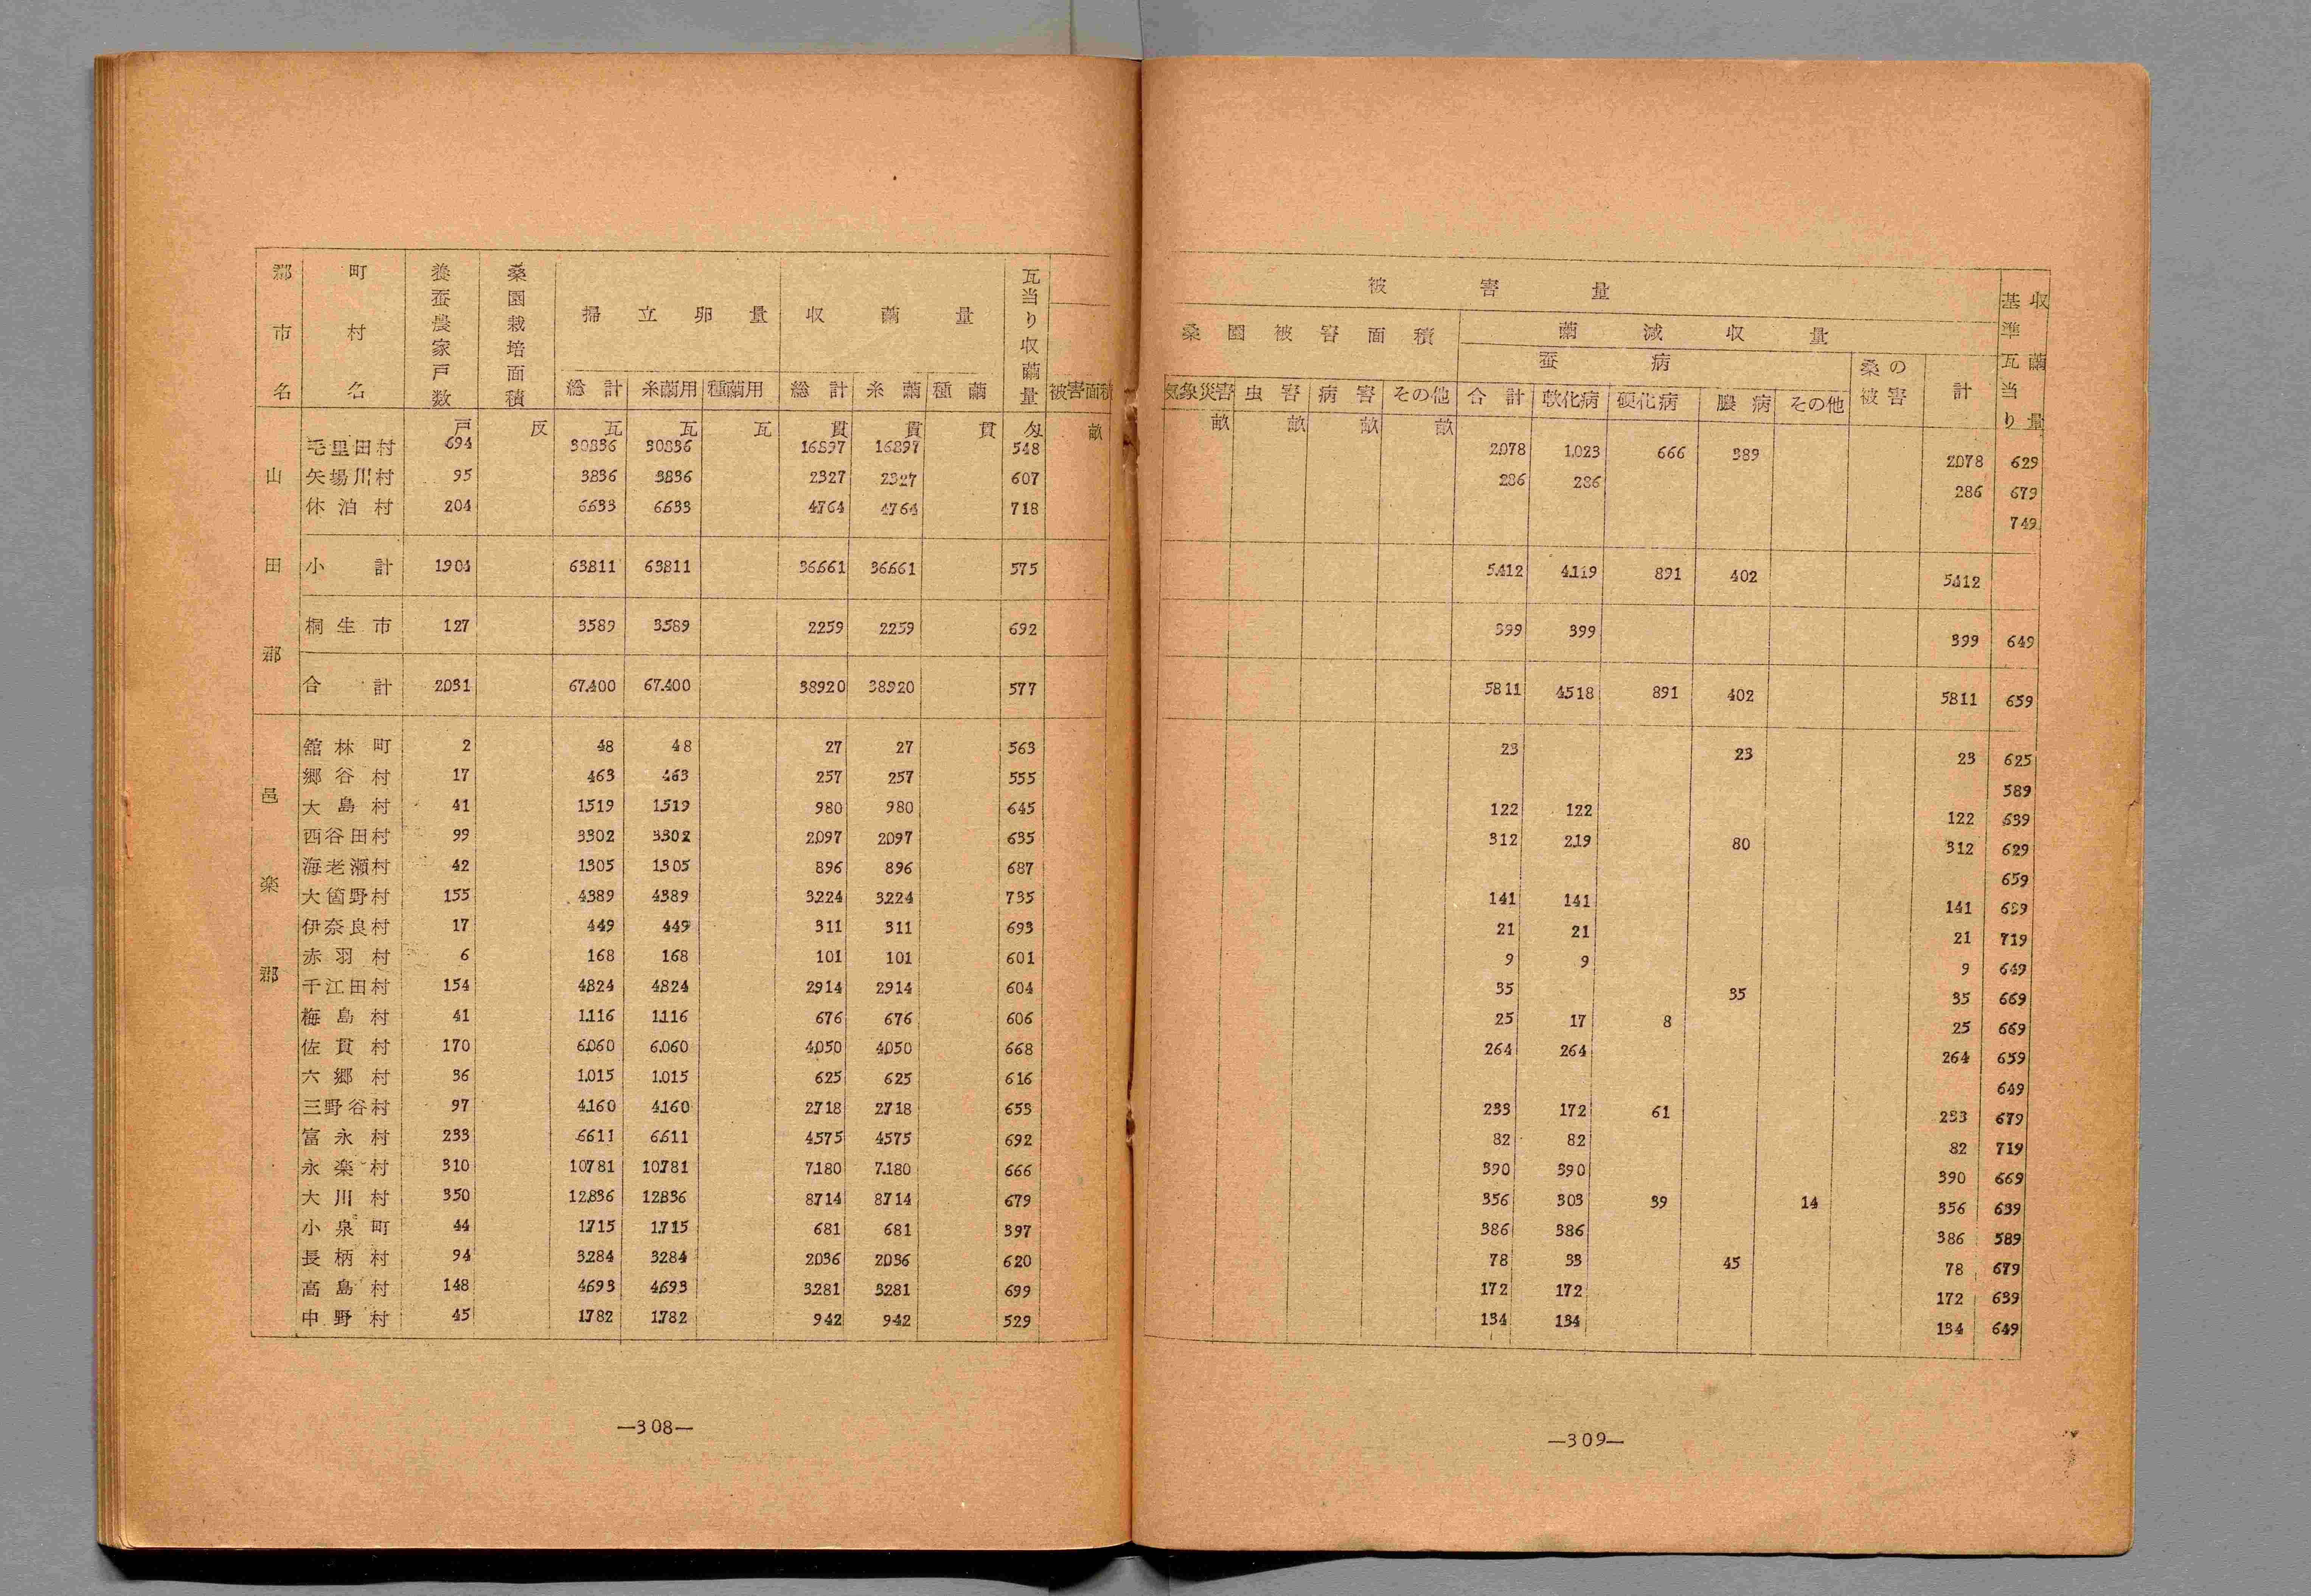 郡市名 町村名 養蚕農家戸数 桑園栽培面積 掃立卵量 収繭量 瓦当り収繭量
総計 糸繭用 種繭用 総計 糸繭 種繭 被害面積
戸 反 瓦 瓦 瓦 貫 貫 貫 匁 畝
山田郡
毛里田村 694 30836 30836 16897 16897 548
矢場川村 95 3836 3836 2327 2327 607
休泊村 204 6633 6633 4764 4764 718
小計 1904 63811 63811 36661 36661 575
桐生市 127 3589 3589 2259 2259 692
合計 2031 67400 67400 38920 38920 577
邑楽郡
舘林町 2 48 48 27 27 563
郷谷村 17 463 463 257 257 555
大島村 41 1519 1519 980 980 645
西谷田村 99 3302 3302 2097 2097 635
海老瀬村 42 1305 1305 896 896 687
大箇野村 155 4389 4389 3224 3224 735
伊奈良村 17 449 449 311 311 693
赤羽村 6 168 168 101 101 601
千江田村 154 4824 4824 2914 2914 604
梅島村 41 1116 1116 676 676 606
佐貫村 170 6060 6060 4050 4050 668
六郷村 36 1015 1015 625 625 616
三野谷村 97 4160 4160 2718 2718 653
富永村 233 6611 6611 4575 4575 692
永楽村 310 10781 10781 7180 7180 666
大川村 350 12836 12836 8714 8714 679
小泉町 44 1715 1715 681 681 397
長柄村 94 3284 3284 2036 2036 620
高島村 148 4693 4693 3281 3281 699
中野村 45 1782 1782 942 942 529
—308—
被害量 基準瓦当り収繭量
桑園被害面積 繭減収量
蚕病 桑の被害 計
気象災害 虫害 病害 その他 合計 軟化病 硬化病 膿病 その他
畝 畝 畝 畝
2078 1023 666 389 2078 629
286 286 286 679
749
5412 4119 891 402 5412
399 399 399 649
5811 4518 891 402 5811 659
23 23 23 625
589
122 122 122 639
312 219 80 312 629
659
141 141 141 689
21 21 21 719
9 9 9 649
35 35 35 669
25 17 8 25 669
264 264 264 659
649
233 172 61 233 679
82 82 82 719
390 390 390 669
356 303 39 14 356 639
386 386 386 589
78 33 45 78 679
172 172 172 639
134 134 134 649
—309—